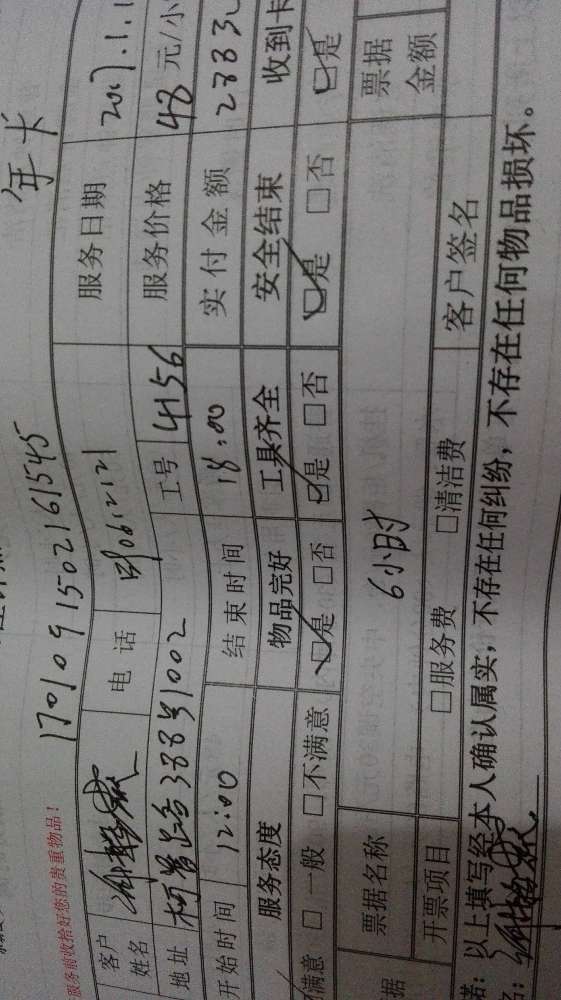 年卡
1701091502161545
服务前收拾好您的贵重物品!
客户姓名 电话 服务日期 2017.1.1
地址 388弄1002 工号 4156 服务价格 48 元/小
开始时间 12:00 结束时间 18:00 实付金额
服务态度 物品完好 工具齐全 安全结束 收到卡
满意 □一般 □不满意 □是 □否 □是 □否 □是 □否 □是
据 票据名称 6小时 票据金额
开票项目 □服务费 □清洁费
诺:以上填写经本人确认属实,不存在任何纠纷,不存在任何物品损坏。
客户签名